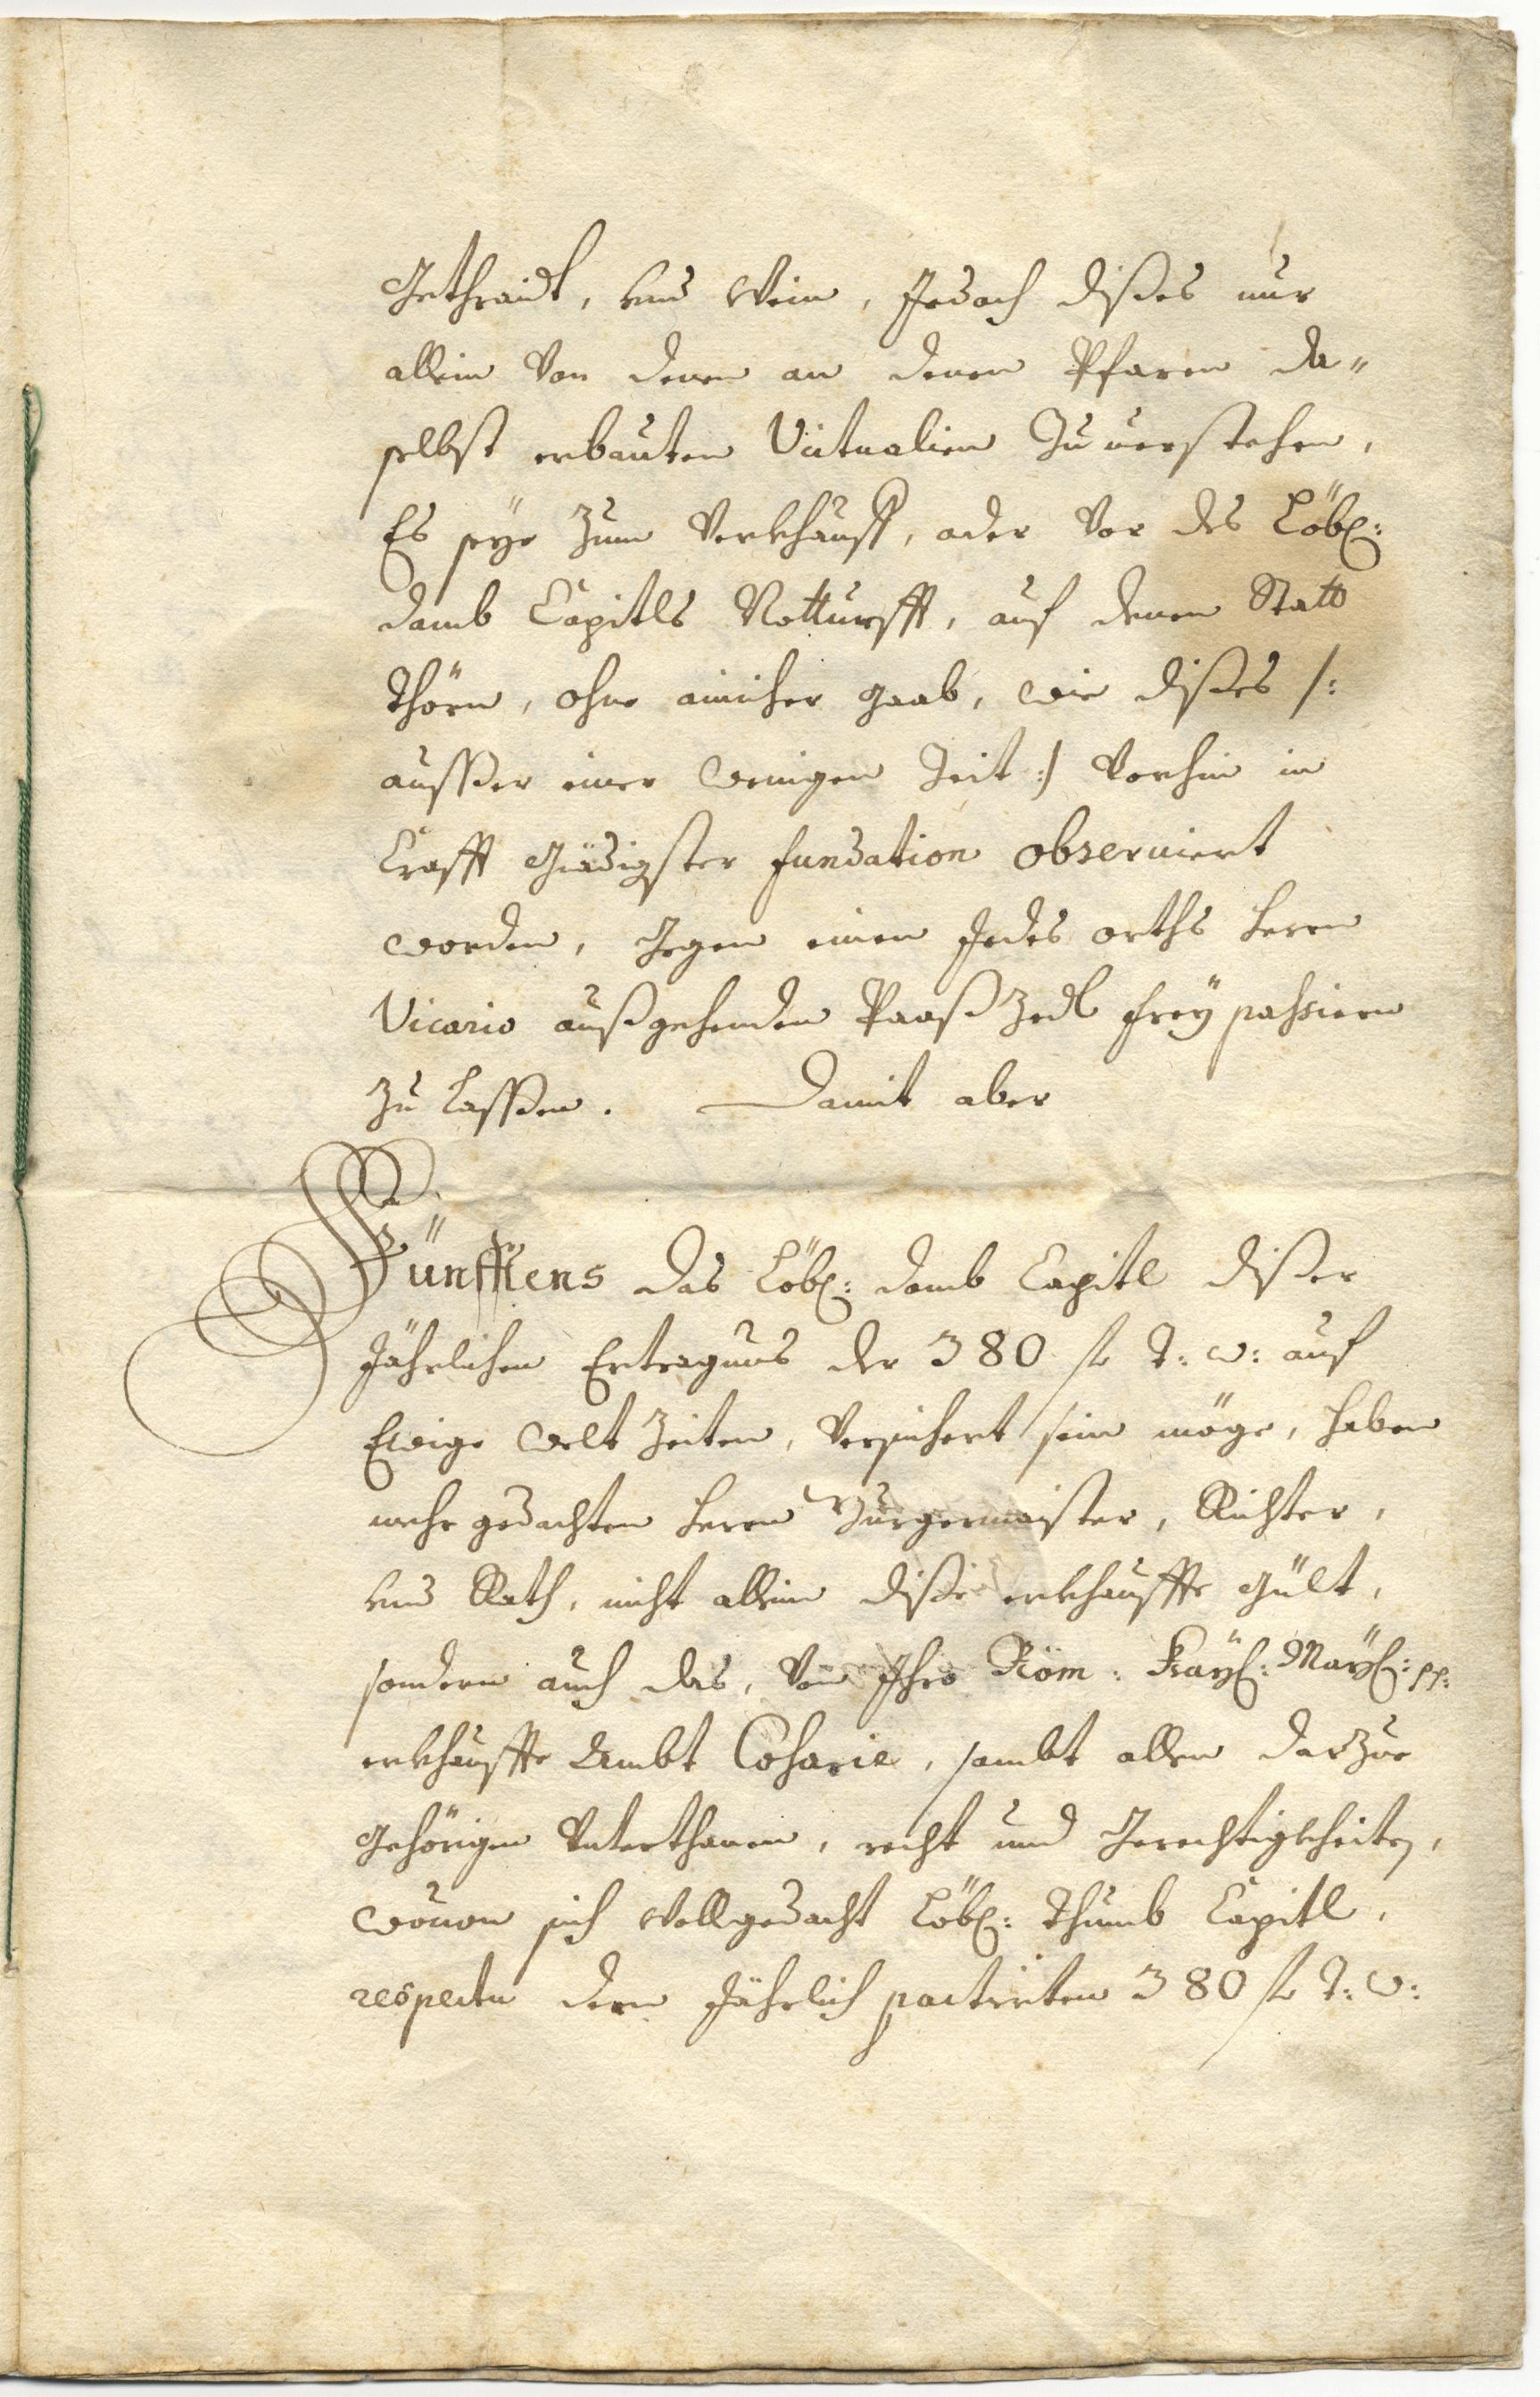 Gethraidt, und Wein, Jedoch dißes nur
allein von denen an denen Pfaren da„
selbst erbauten Victualien zuuerstehen,
Es seye zum Verkhauff, oder vor des Löbl:
domb Capitls Notturfft, auf denen Statt
Thören, ohne ainicher gaab, wie dißes /:
ausser einer wenigen Zeit :/ vorhin in
Crafft Gnädigster fundation obseruiert
worden, Gegen einen Jedes orths herrn
Vicario außgehenden Paaß Zedl freÿ passiern
zu lassen. Damit aber
Fünfftens das Löbl: domb Capitl dißer
Jährlichen Ertragnus der 380 fl T: w: auf
Ewige Welt Zeiten, Versichert sein möge, haben
mehr gedachten herrn Burgermaister, Richter,
und Rath, nicht allein diße erkhauffte Gült,
sondern auch das, von Ihro Röm: Kaÿl: Maÿl: pp:
erkhauffte Ambt Coharie, sambt allen darzue
Gehörigen Unterthanen, recht und Gerechtigkheiten,
wouon sich Wollgedacht Löbl: Thumb Capitl,
respectu deren Jährlich pactirten 380 fl T: W: